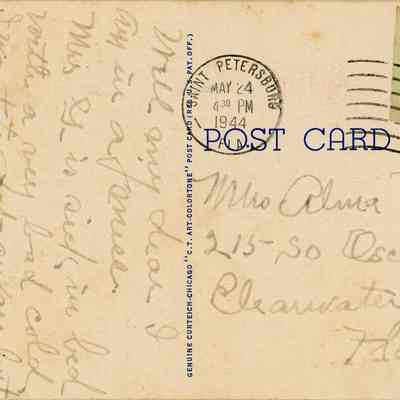 Well my dear I
am in a
Mrs is sick in bed
with a very bad cold
GENUINE CURTEICH-CHICAGO "C.T. ART-COLORTONE" POST CARD (REG. U.S. PAT. OFF.)
SAINT PETERSBURG
MAY 24
4 30 PM
1944
FLA.
POST CARD
Mrs Alma
215-So Osc
Clearwater
Fla